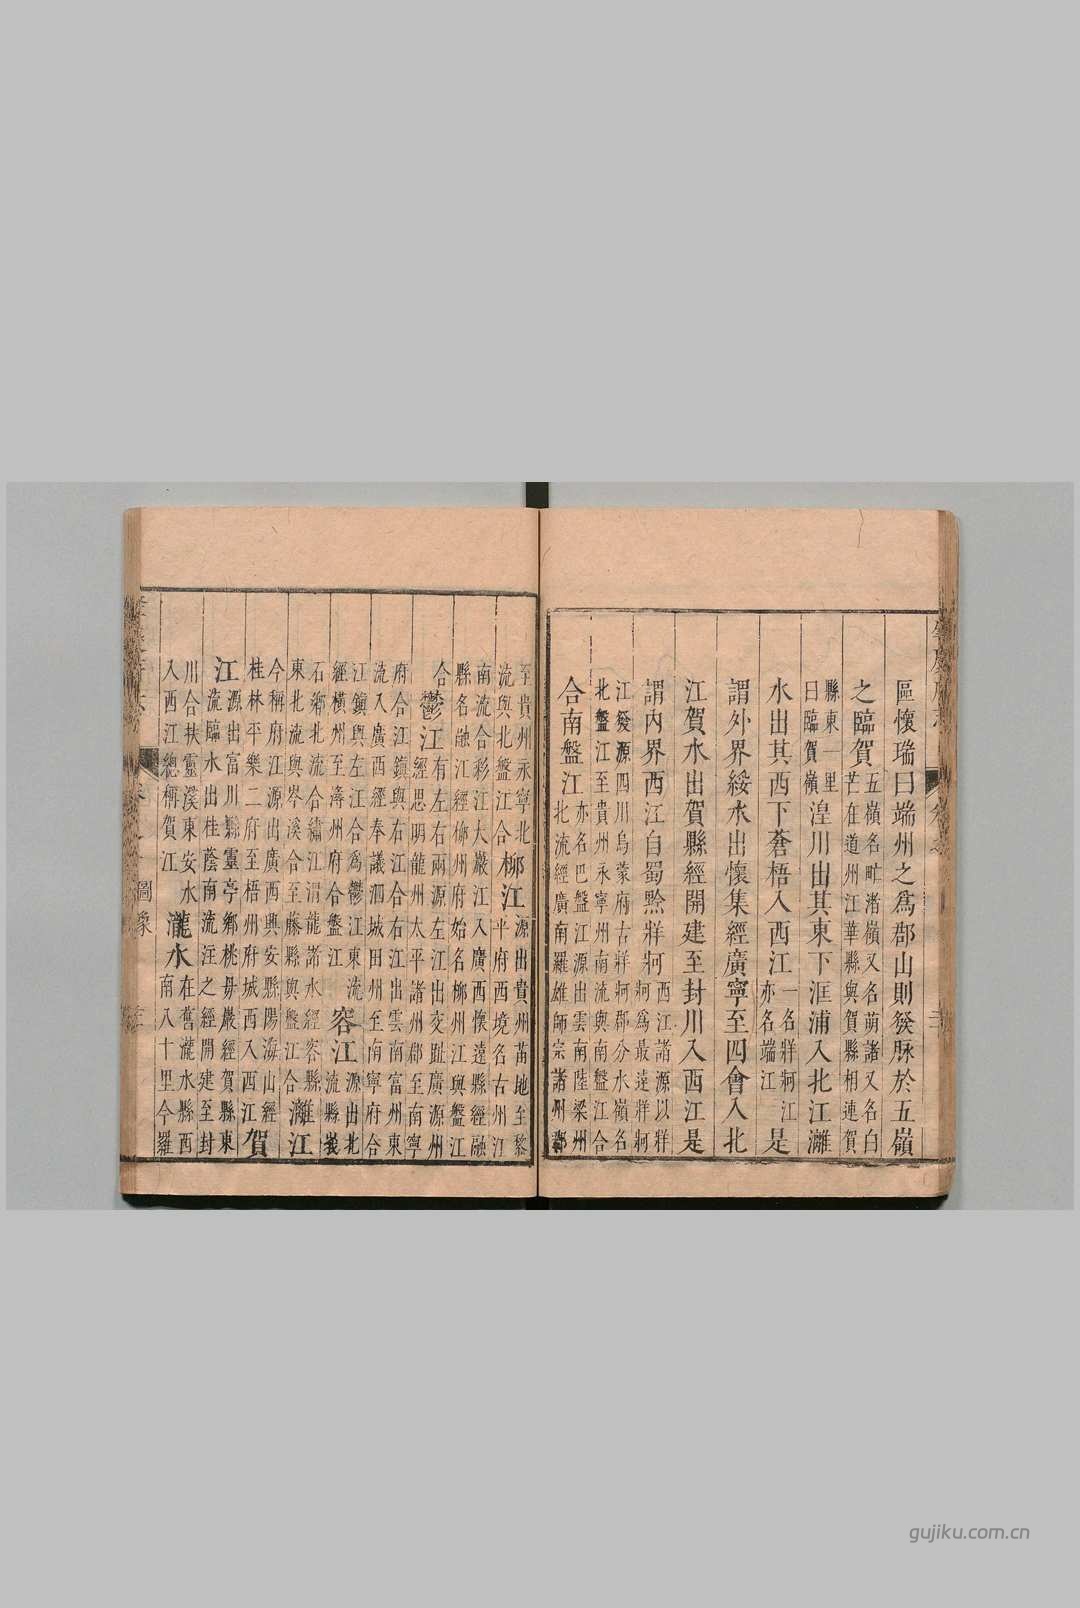 區懷瑞曰端州之爲郡山則發脉於五嶺
之臨賀五嶺名甿渚嶺又名萌諸又名白
芒在道州江華縣與賀縣相連賀
縣東一里
曰臨賀嶺湟川出其東下洭浦入北江灕
水出其西下蒼梧入西江一名牂牁江
亦名端江是
謂外界綏水出懷集經廣寧至四會入北
江賀水出賀縣經開建至封川入西江是
謂內界西江自蜀黔牂牁西江諸源以牂
牁爲最遠牂牁
江發源四川烏蒙府古牂牁郡分水嶺名
北盤江至貴州永寧州南流與南盤江合
合南盤江亦名巴盤江源出雲南陸梁州
北流經廣南羅雄師宗諸州
至貴州永寧北
流與北盤江合柳江源出貴州苗地至黎
平府西境名古州江
南流合彩江大巖江入廣西懷遠縣經融
縣名融江經柳州府始名柳州江與盤江
合鬱江有左右兩源左江出交趾廣源州
經思明龍州太平諸州郡至南寧
府合江鎮與右江合右江出雲南富州東
流入廣西經奉議泗城田州至南寧府合
江鎮與左江合爲鬱江東流
經橫州至潯州府合盤江容江源出北
流縣
石鄉北流合繡江渭龍諸水經容縣
東北流與岑溪合至藤縣與盤江合灕江
今稱府江源出廣西興安縣陽海山經
桂林平樂二府至梧州府城西入西江賀
江源出富川縣靈亭鄉桃毋巖經賀縣東
流臨水出桂蔭南流注之經開建至封
川合扶靈溪東安水瀧水在舊瀧水縣西
入西江總稱賀江南入十里今羅
圖象